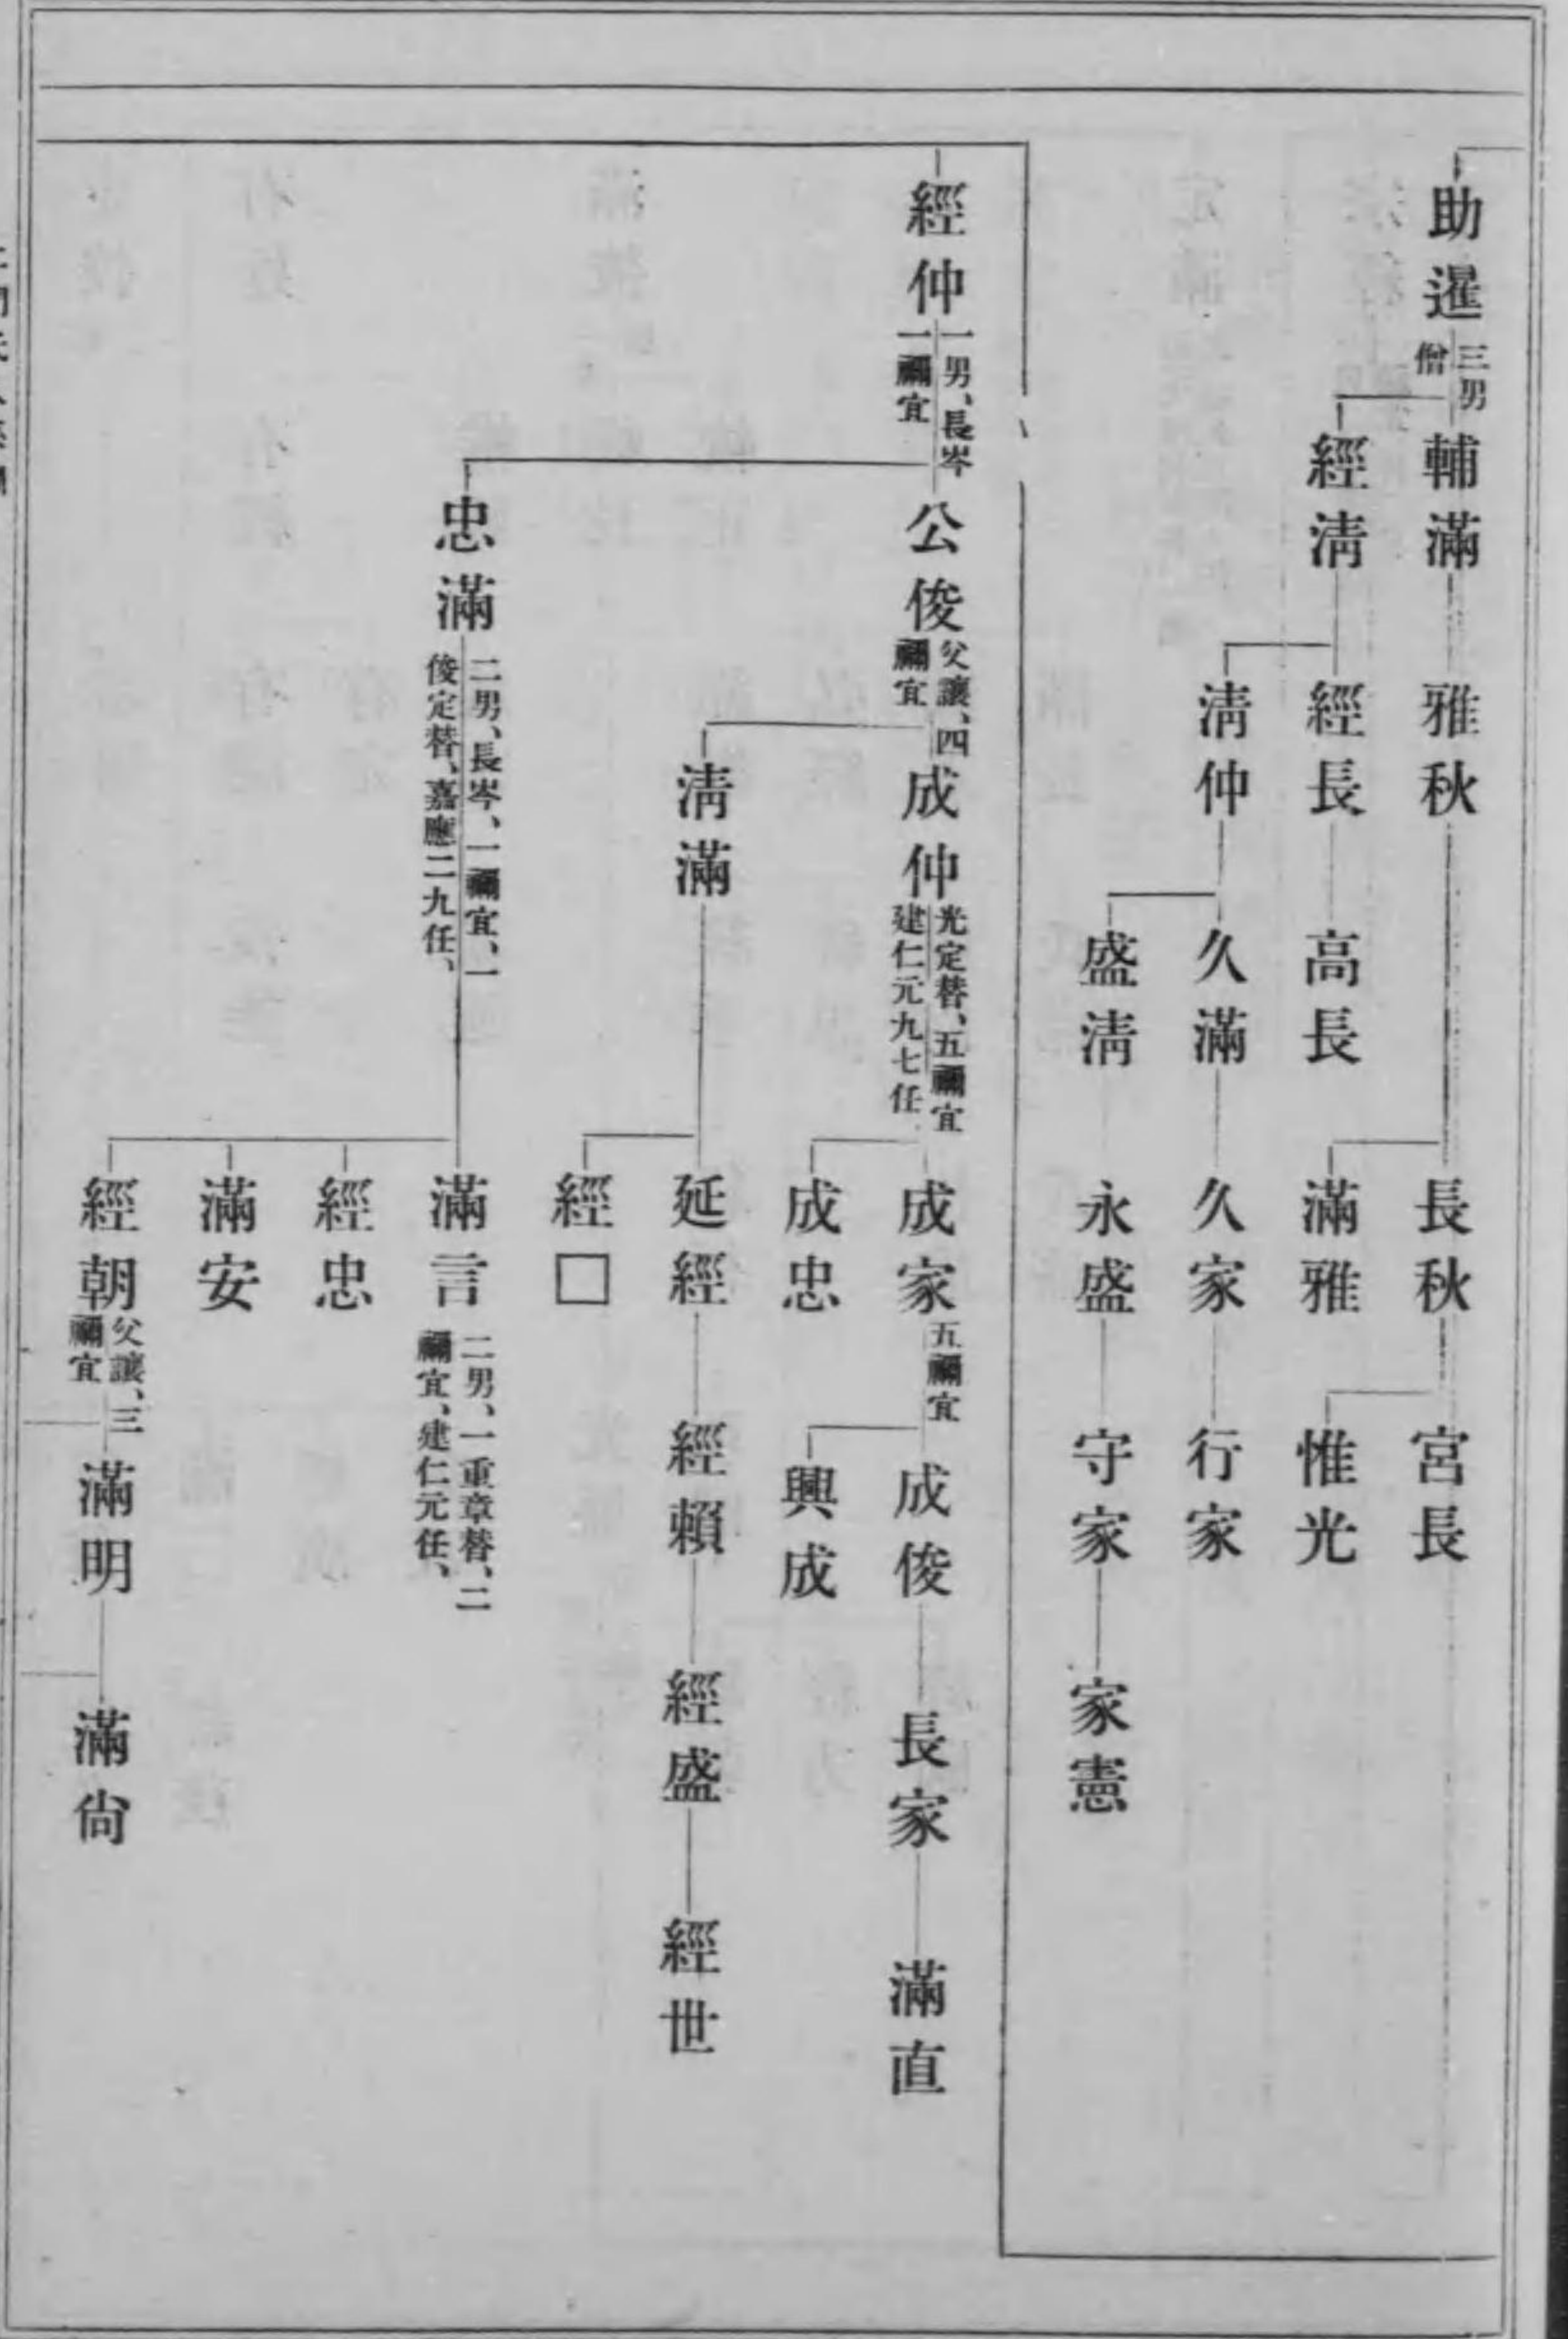 助暹
三男
僧
輔滿
雅秋
長秋
宮長
惟光
滿雅
經淸
經長
高長
淸仲
久滿
久家
行家
盛淸
永盛
守家
家憲
經仲
一男、長岑
一禰宜
公俊
父讓、四
禰宜
成仲
光定替、五禰宜
建仁元九七任
成家
五禰宜
成俊
長家
滿直
興成
成忠
淸滿
延經
經賴
經盛
經世
經□
忠滿
二男、長岑、一禰宜、一
俊定替、嘉應二九任、
滿言
二男、一重章替、二
禰宜、建仁元任、
經忠
滿安
經朝
父讓、三
禰宜
滿明
滿尙